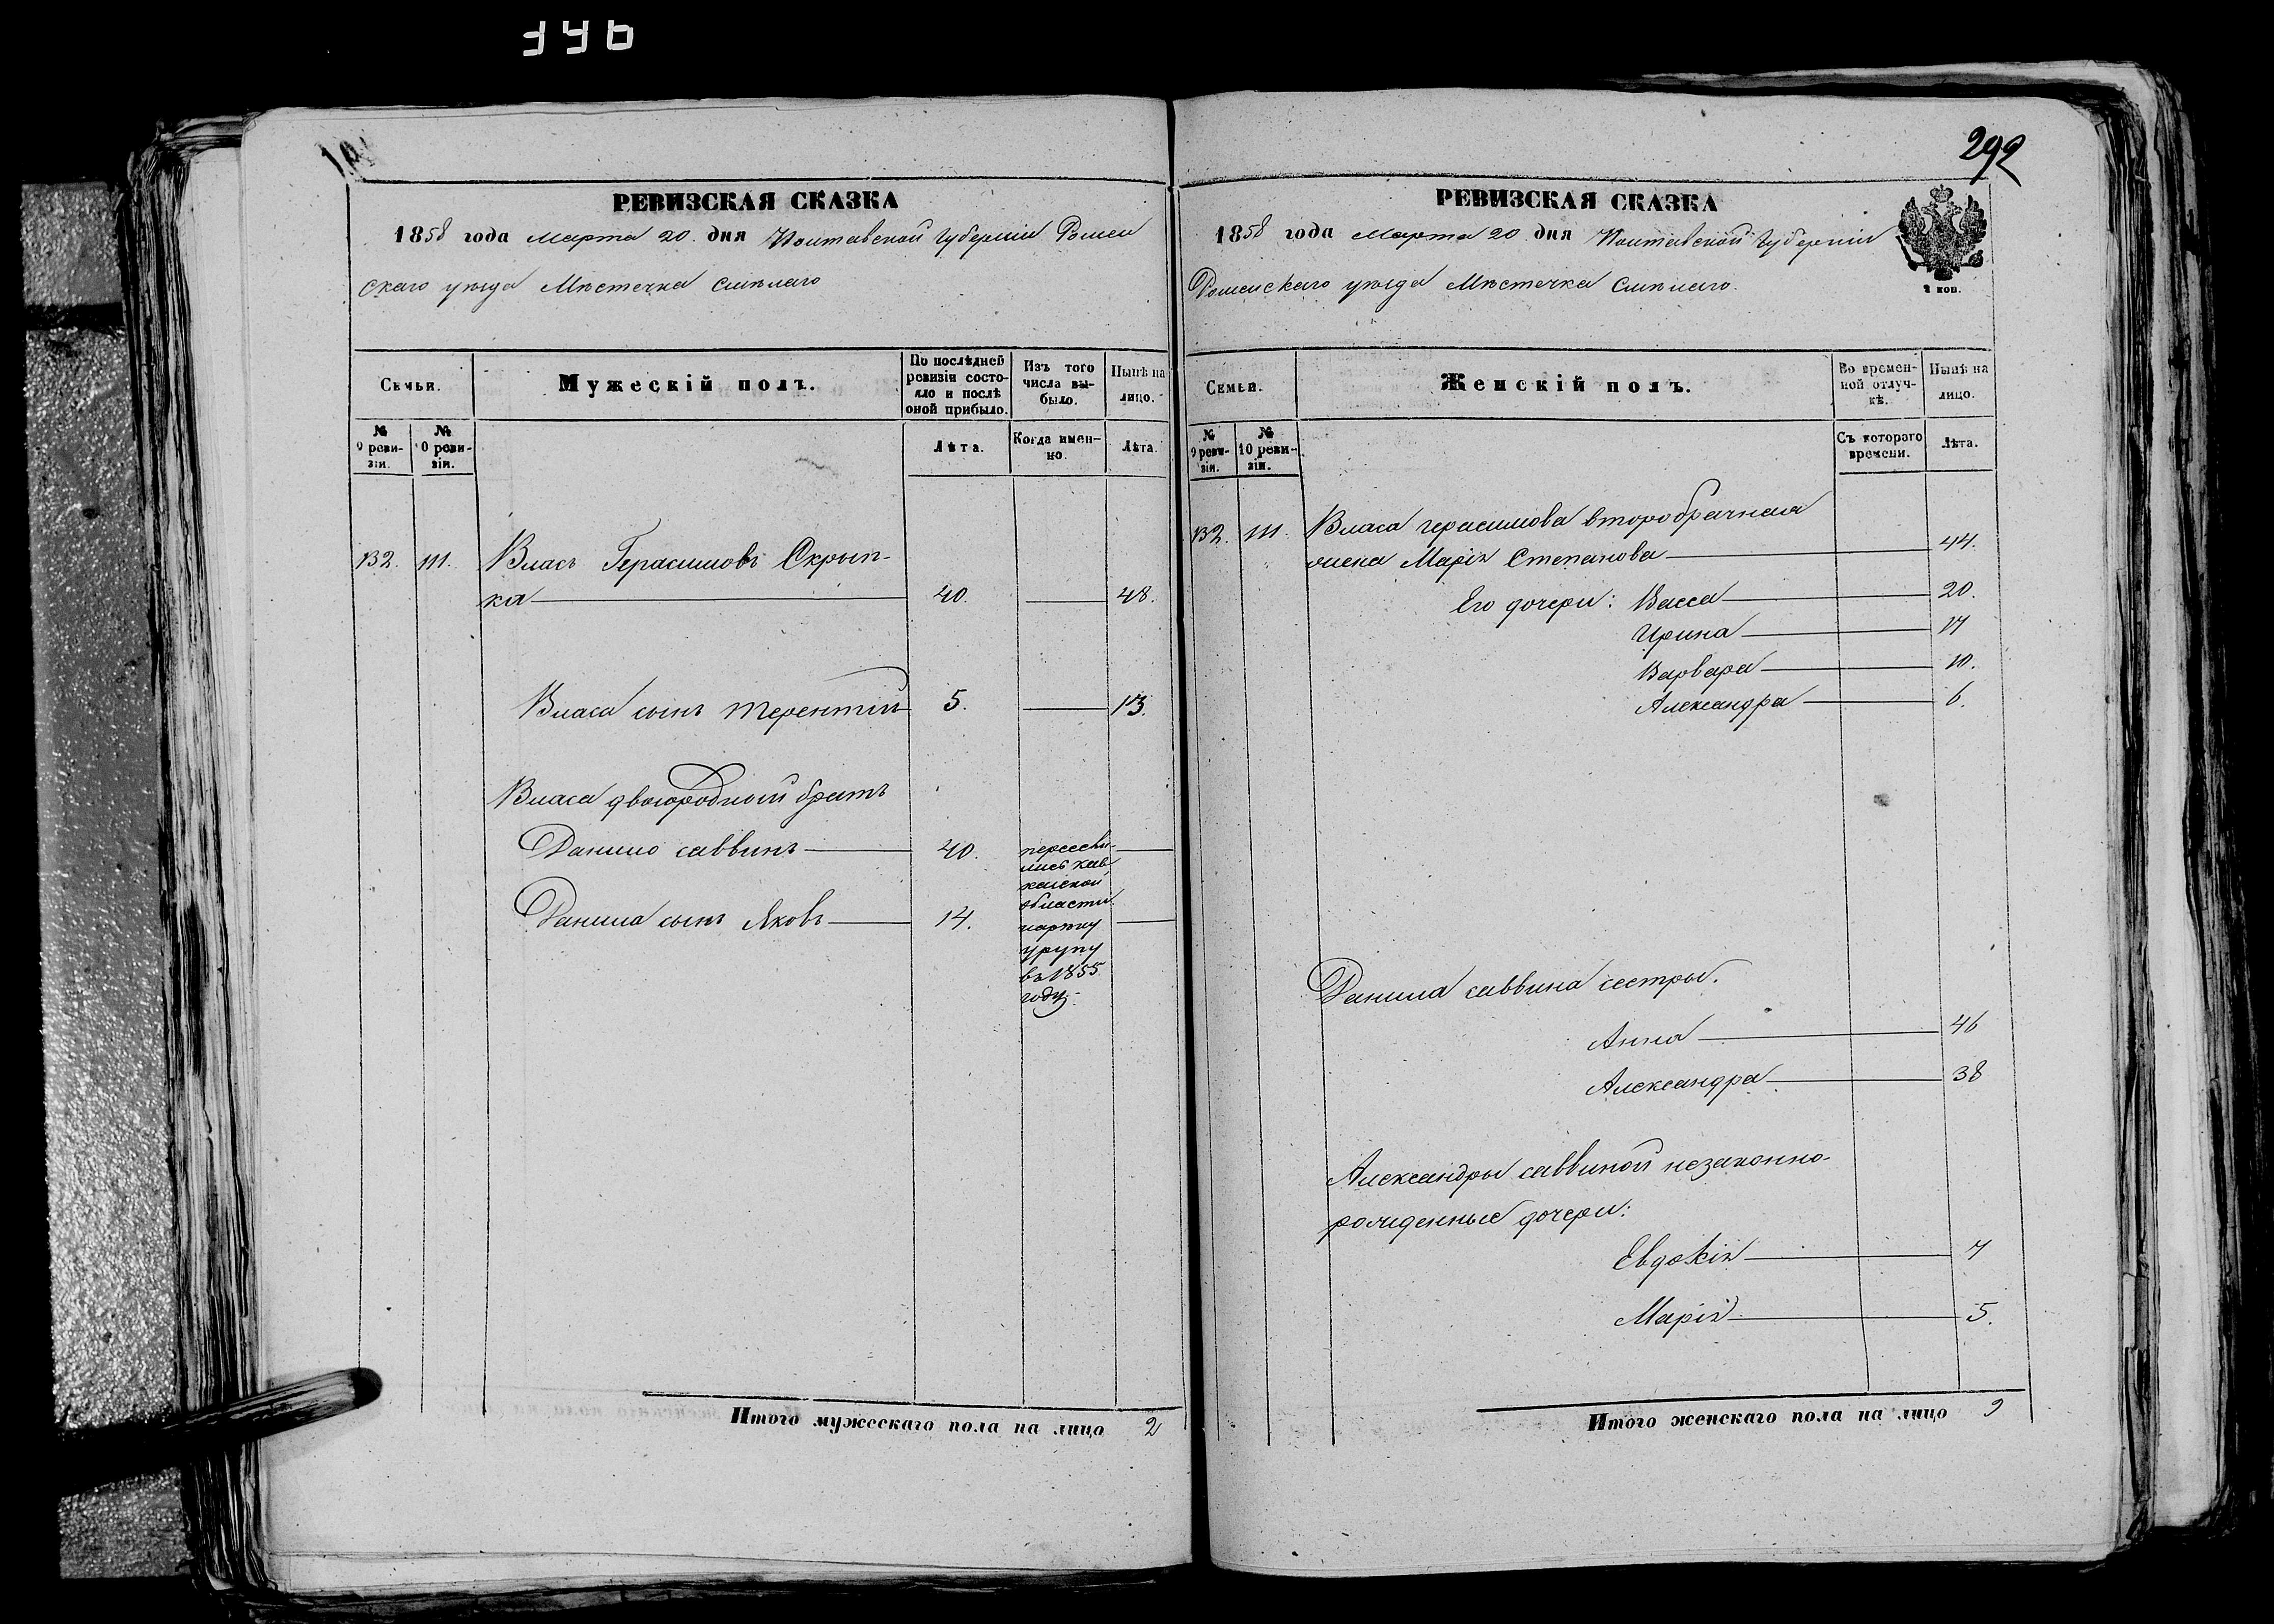 346
292
РЕВИЗСКАЯ СКАЗКА
1858 года Марта 20 дня Полтавской Губерніи Ромен
скаго уѣзда Мѣстечка Смѣлаго
Семьи.
Мужескій полъ.
По послѣдней ревизіи состояло и послѣ оной прибыло.
Изъ того числа выбыло.
Нынѣ на лицо.
№ 9 ревизіи.
№ 10 ревизіи.
Лѣта.
Когда именно.
Лѣта.
132. 111. Власъ Герасимовъ Скрып-
ка 40. 48.
Власа сынъ Терентій 5. 13.
Власа двоюродный братъ
Данило Саввинъ 40.
Данила сынъ Яковъ 14.
пересели-
лись кав
казской
области
на рѣку
урупу
въ 1855
году.
Итого мужескаго пола на лицо 2
РЕВИЗСКАЯ СКАЗКА
1858 года Марта 20 дня Полтавской Губерніи
Роменскаго уѣзда Мѣстечка Смѣлаго.
2 коп.
Семьи.
Женскій полъ.
Во временной отлучкѣ.
Нынѣ на лицо.
№ 9 ревизіи.
№ 10 ревизіи.
Съ котораго времени.
Лѣта.
132. 111. Власа Герасимова второбрачная
жена Марія Степанова 44.
Его дочери: Васса 20.
Ирина 17
Варвара 10.
Александра 6.
Данила Саввина сестры.
Анна 46
Александра 38
Александры Саввиной незаконно-
рожденные дочери:
Евдокія 7
Марія 5.
Итого женскаго пола на лицо 9